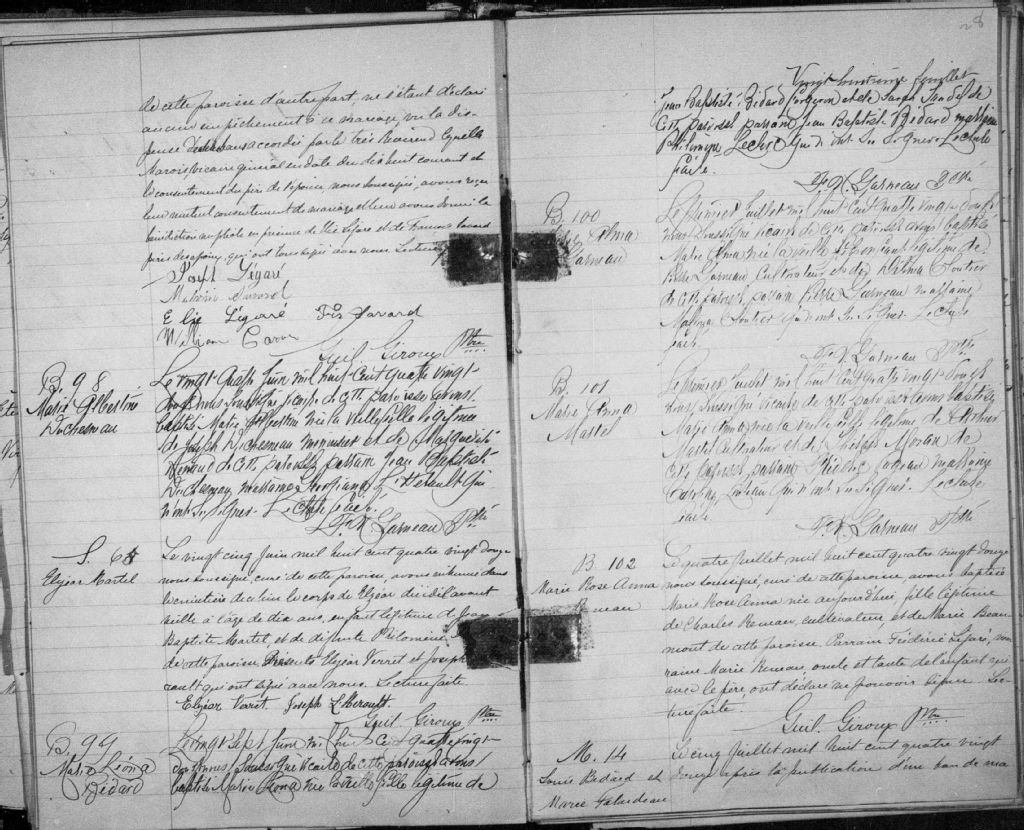 de cette paroisse d'autre part, ne s'étant déclaré
aucun empêchement à ce mariage, vu la dis-
pense de bans accordée par le très Révérend Cyrille
Marois vicaire général en date du dix huit courant et
le consentement du père de l'épouse nous soussigné, avons reçu
leur mutuel consentement de mariage et leur avons donné la
bénédiction nuptiale en présence de Elie Légaré et de François Savard
père des époux, qui ont tous signé avec nous. Lecture
Légaré
Savard
Elie Légaré Frs Savard
William
Guil. Giroux Ptre
B. 98
Marie Albertine
Duchesneau
Le vingt quatre Juin mil huit cent quatre vingt
douze nous soussigné vicaire de cette paroisse avons
baptisé Marie Albertine née la veille fille légitime
de Joseph Duchesneau menuisier et de
de cette paroisse, parrain Jean Baptiste
Duchesneau marraine Georgianna L'Hérault qui
n'ont su signer. Lecture faite.
Fr. X. Garneau Ptre
S. 68
Elzéar Martel
Le vingt cinq Juin mil huit cent quatre vingt douze
nous soussigné, curé de cette paroisse, avons inhumé dans
le cimetière de ce lieu le corps de Elzéar décédé l'avant
veille à l'âge de dix ans, enfant légitime de Jean
Baptiste Martel et de défunte Philomène
de cette paroisse. Présents Elzéar Verret et Joseph
rault qui ont signé avec nous. Lecture faite.
Elzéar Verret. Joseph L'Herault.
Guil. Giroux Ptre
B. 99
Marie Léona
Bédard
Le vingt sept Juin mil huit cent quatre vingt
douze nous soussigné vicaire de cette paroisse avons
baptisé Marie Léona née la veille fille légitime de
28
Vingt huitième feuillet
Jean Baptiste Bédard forgeron et de Sarah de
cette paroisse, parrain Jean Baptiste Bédard marraine
Philomène Leclerc qui n'ont su signer. Lecture
faite.
Fr. X. Garneau Ptre
B. 100
Marie Alma
Garneau
Le premier Juillet mil huit cent quatre vingt douze
nous soussigné vicaire de cette paroisse avons baptisé
Marie Alma née la veille enfant légitime de
Pierre Garneau cultivateur et de Cloutier
de cette paroisse, parrain Pierre Garneau marraine
Malvina Cloutier qui n'ont su signer. Lecture
faite.
Fr. X. Garneau Ptre
B. 101
Marie Anna
Martel
Le premier Juillet mil huit cent quatre vingt douze
nous soussigné vicaire de cette paroisse avons baptisé
Marie Anna née la veille fille légitime de
Martel cultivateur et de de
cette paroisse, parrain marraine
qui n'ont su signer. Lecture
faite.
Fr. X. Garneau Ptre
B. 102
Marie Rose Anna
Renaud
Le quatre Juillet mil huit cent quatre vingt douze
nous soussigné, curé de cette paroisse, avons baptisé
Marie Rose Anna née aujourd'hui, fille légitime
de Charles Renaud, cultivateur et de Marie Beau-
mont de cette paroisse. Parrain Frédéric Légaré, mar-
raine Marie Renaud, oncle et tante de l'enfant qui
avec le père ont déclaré ne pouvoir signer. Lec-
ture faite.
Guil. Giroux Ptre
M. 14
Louis Bédard et
Marie Falardeau
Le cinq Juillet mil huit cent quatre vingt
douze après la publication d'un ban de ma